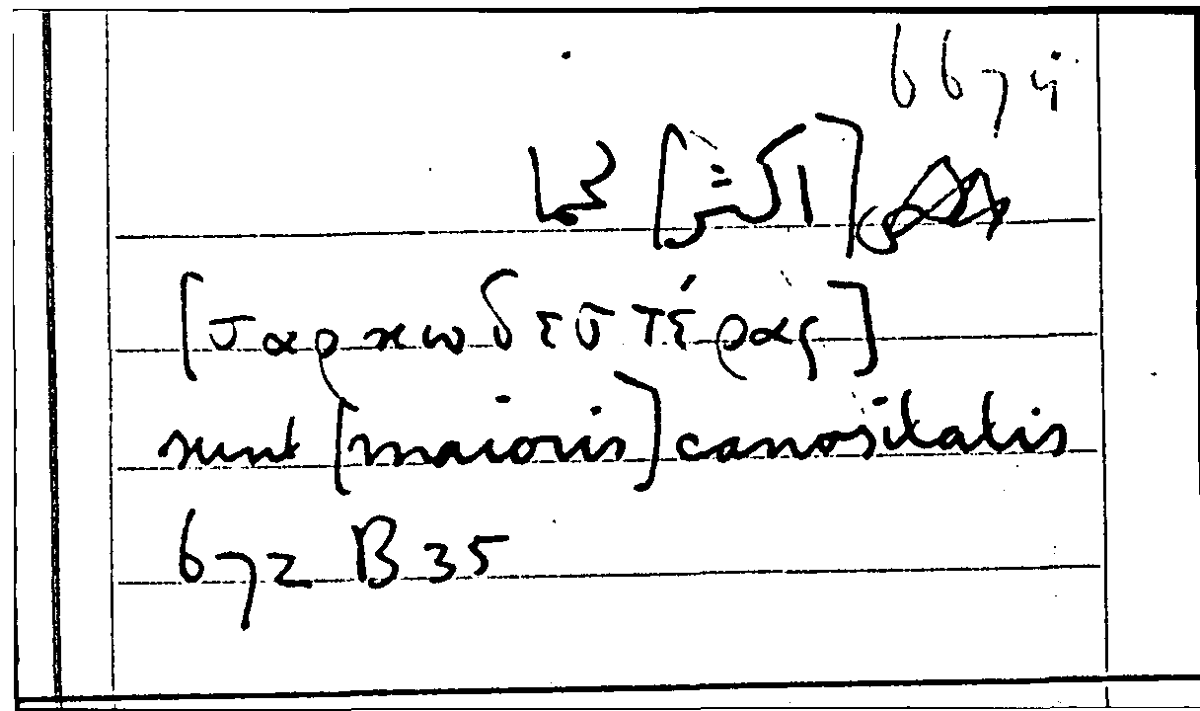 6674
[اكثر] لحما
[σαρκωδεστέρας]
sunt [maioris] carnositatis
672 B 35